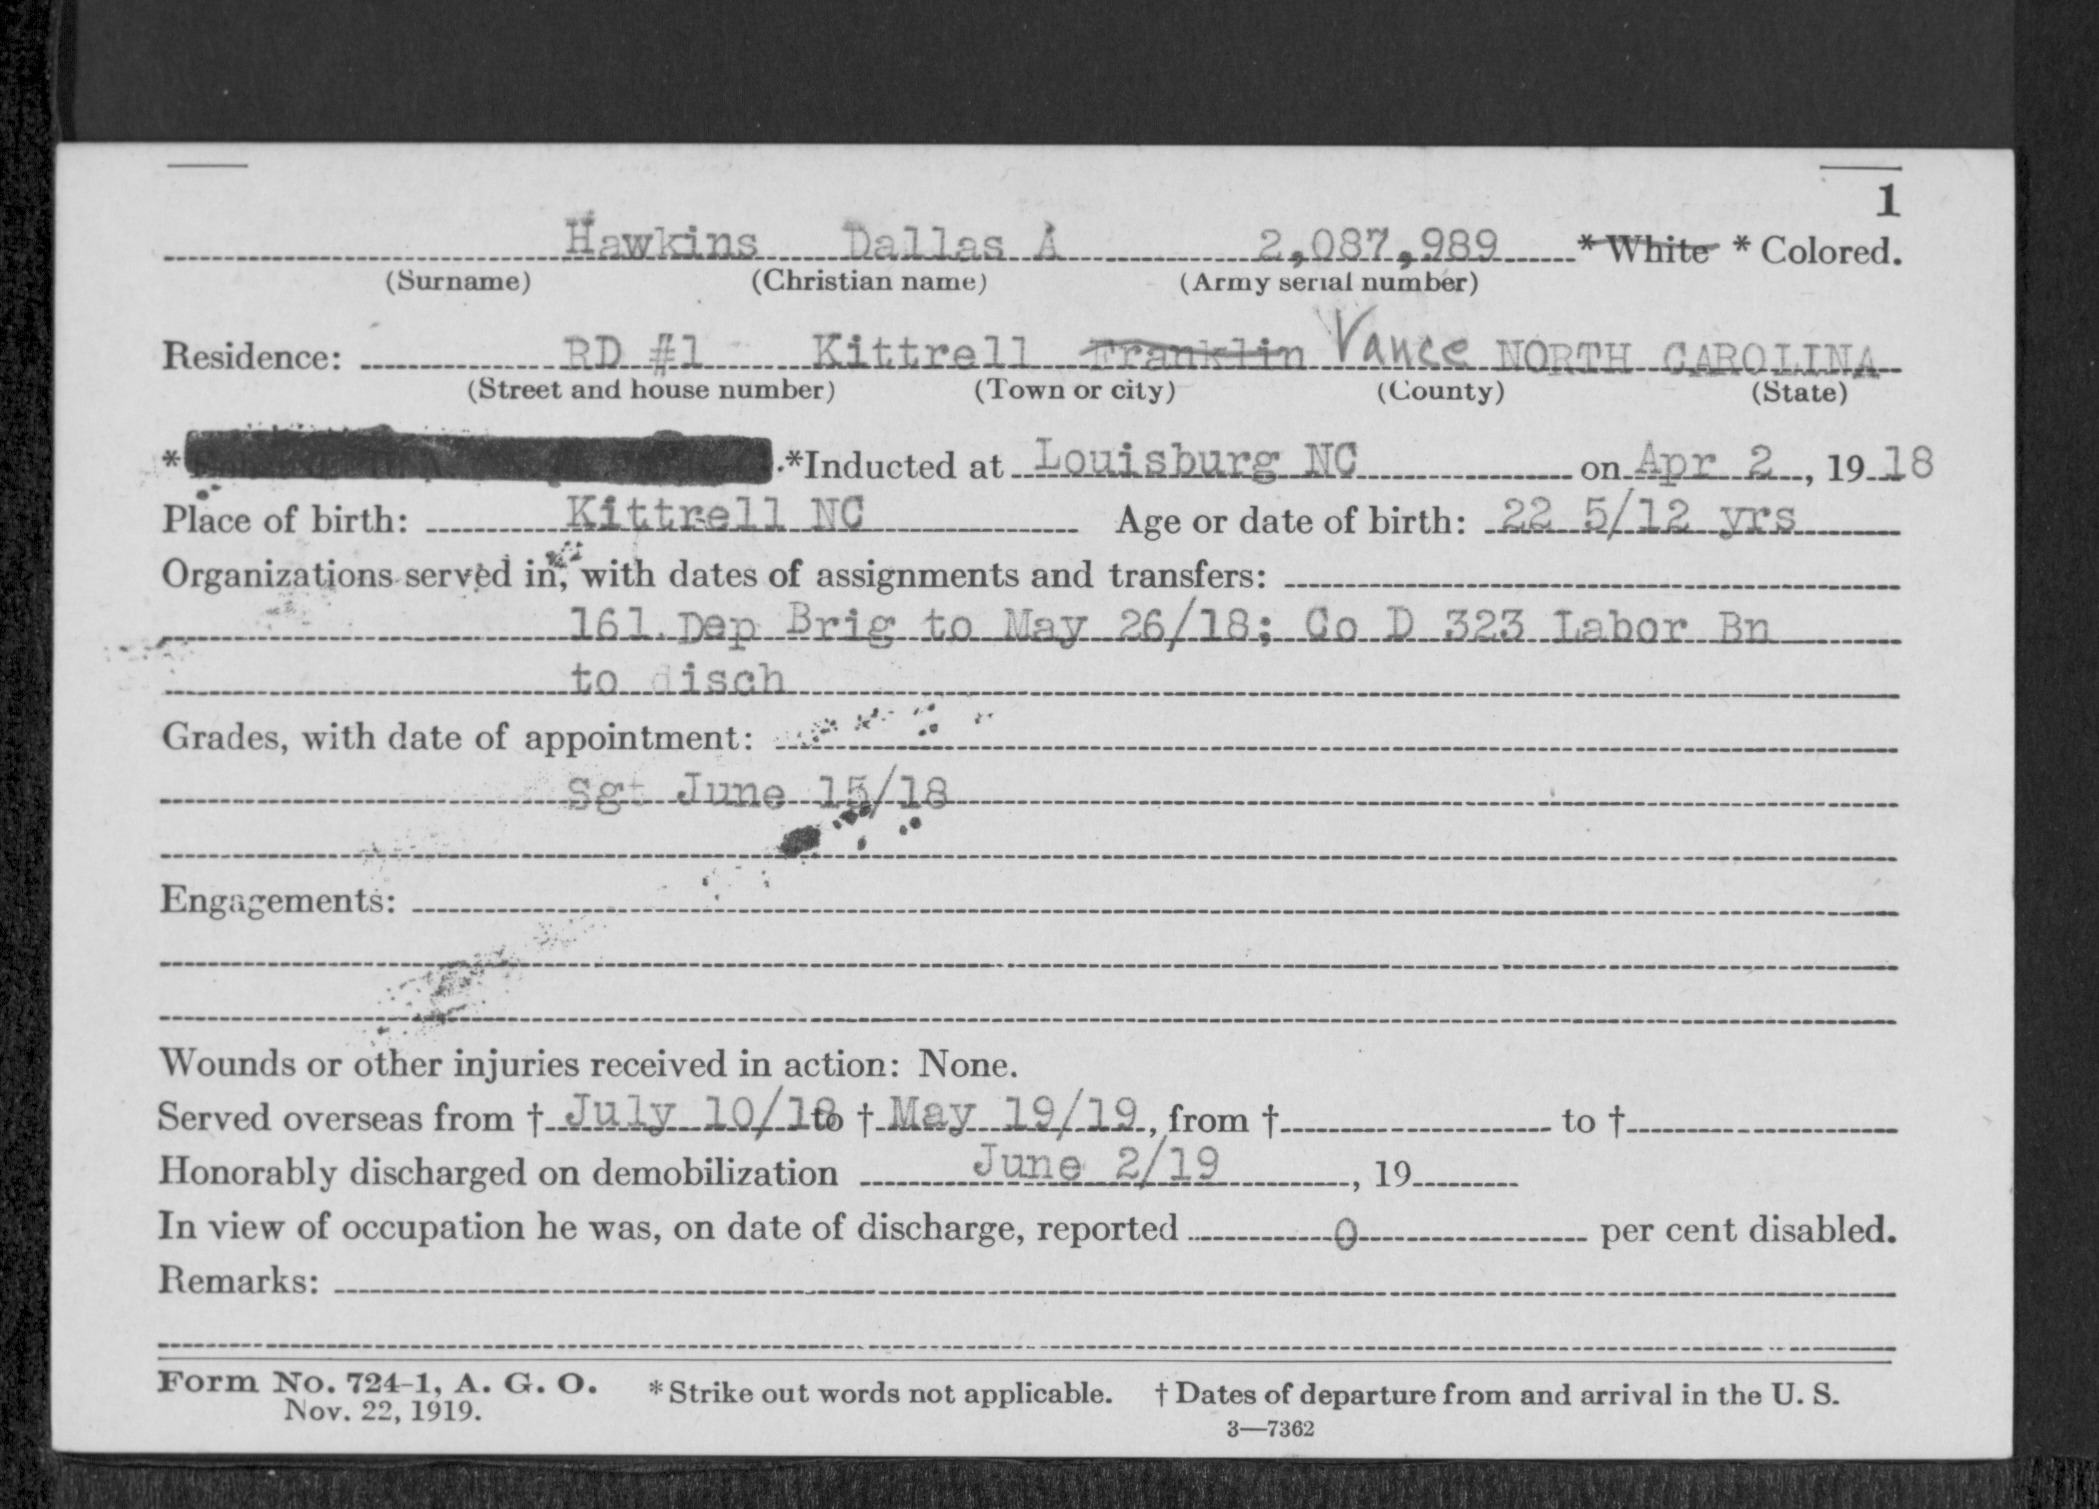 1
Hawkins Dallas A 2,087,989 *White *Colored.
(Surname) (Christian name) (Army serial number)
Residence: RD #1 Kittrell Franklin Vance NORTH CAROLINA
(Street and house number) (Town or city) (County) (State)
* .*Inducted at Louisburg NC on Apr 2, 19 18
Place of birth: Kittrell NC Age or date of birth: 22 5/12 yrs
Organizations served in, with dates of assignments and transfers:
161 Dep Brig to May 26/18; Co D 323 Labor Bn
to disch
Grades, with date of appointment:
Sgt June 15/18
Engagements:
Wounds or other injuries received in action: None.
Served overseas from † July 10/18 to † May 19/19, from † to †
Honorably discharged on demobilization June 2/19, 19
In view of occupation he was, on date of discharge, reported 0 per cent disabled.
Remarks:
Form No. 724-1, A. G. O. *Strike out words not applicable. † Dates of departure from and arrival in the U. S.
Nov. 22, 1919.
3—7362